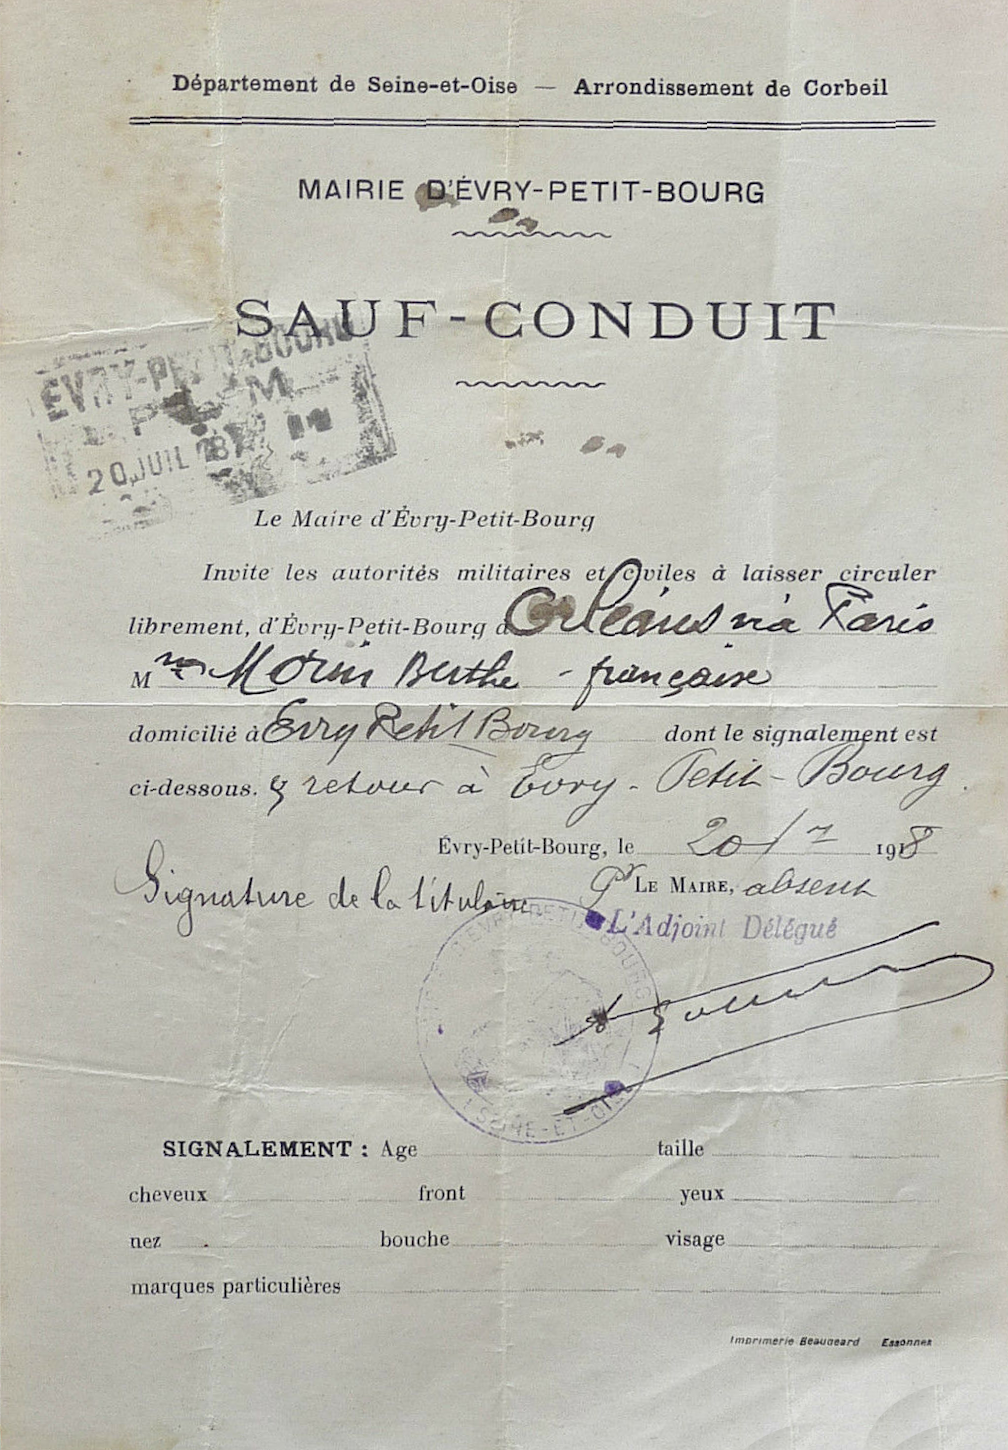 Département de Seine-et-Oise — Arrondissement de Corbeil
MAIRIE D'ÉVRY-PETIT-BOURG
SAUF-CONDUIT
EVRY-PETIT-BOURG
P L M
20 JUIL 18
Le Maire d'Évry-Petit-Bourg
Invite les autorités militaires et civiles à laisser circuler
librement, d'Évry-Petit-Bourg à Orléans via Paris
Mme Morin Berthe - française
domicilié à Evry Petit Bourg dont le signalement est
ci-dessous. & retour à Evry-Petit-Bourg.
Évry-Petit-Bourg, le 20/7 1918
Signature de la titulaire Pr LE MAIRE, absent
L'Adjoint Délégué
MAIRIE D'EVRY-PETIT-BOURG
(SEINE-ET-OISE)
SIGNALEMENT : Age taille
cheveux front yeux
nez bouche visage
marques particulières
Imprimerie Beaugeard Essonnes